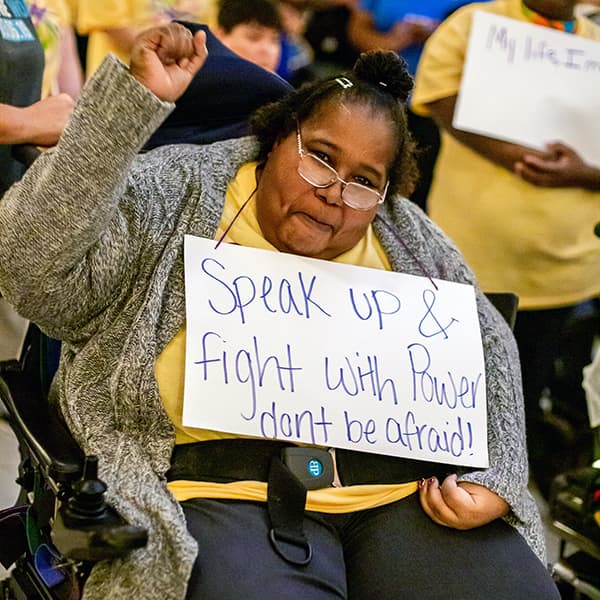 Speak up &
fight with Power
dont be afraid!
My life, I m